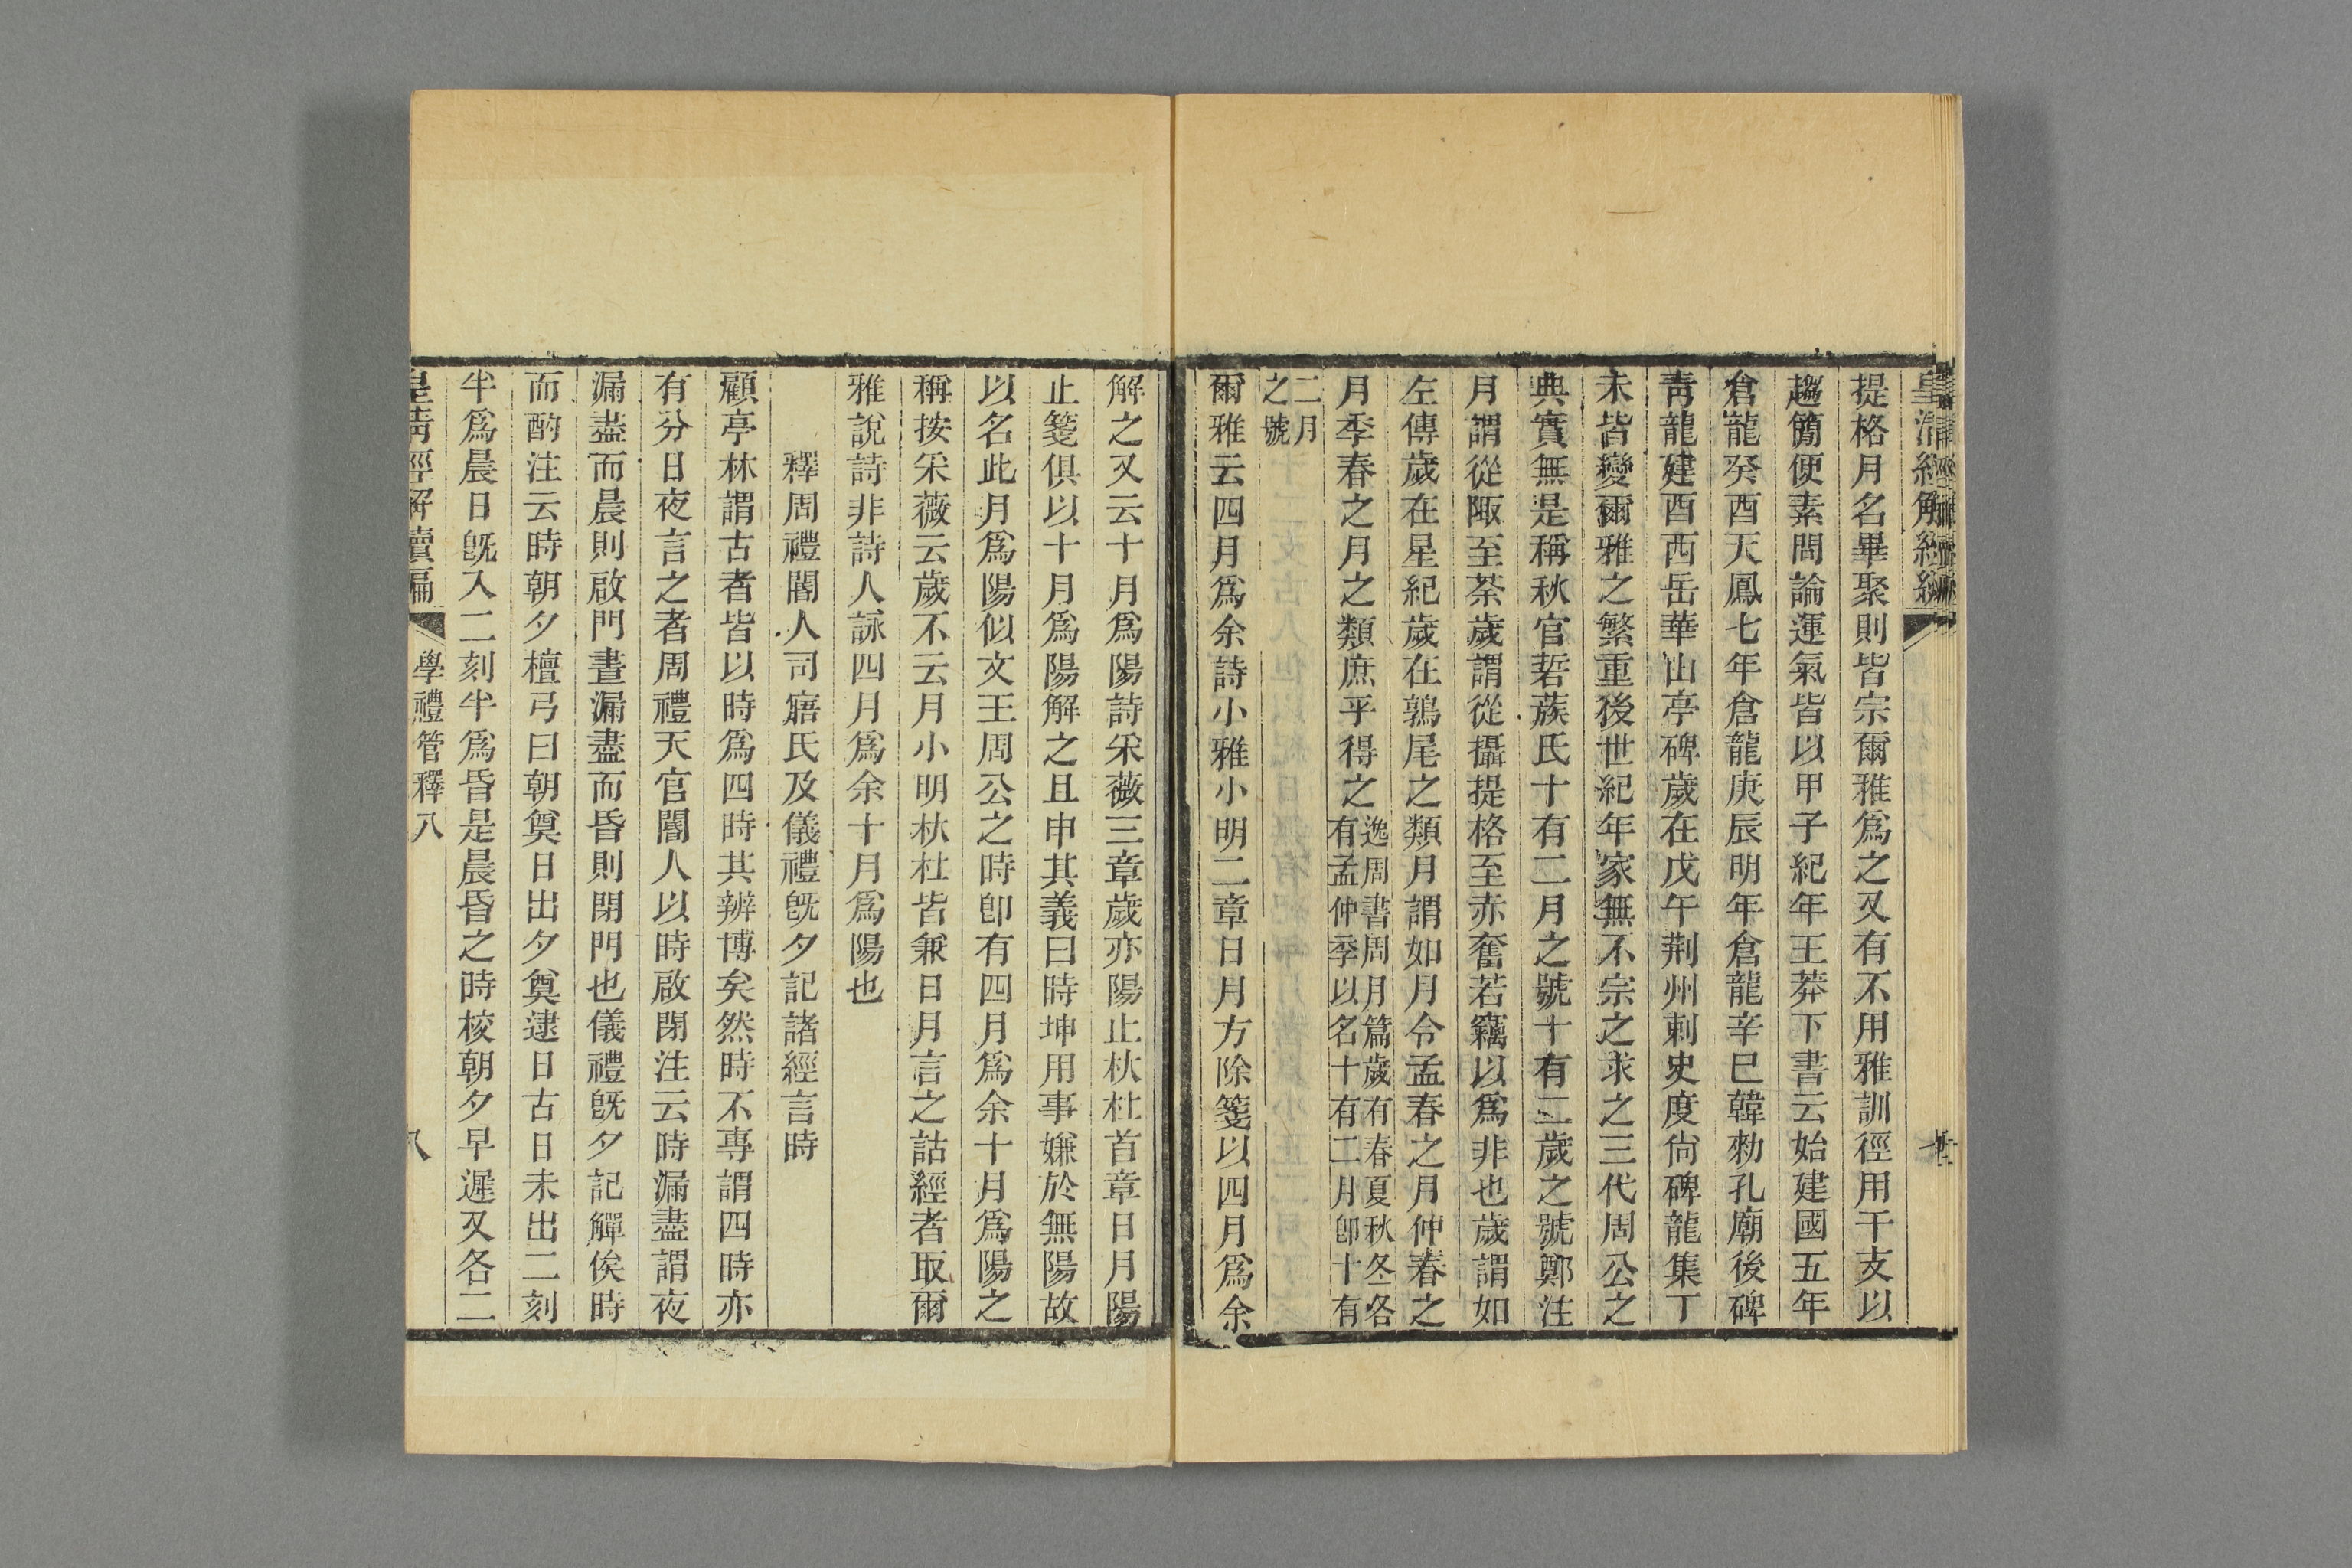 提格月名畢聚則皆宗爾雅爲之又有不用雅訓徑用干支以
趨簡便素問論運氣皆以甲子紀年王莽下書云始建國五年
倉龍癸酉天鳳七年倉龍庚辰明年倉龍辛巳韓勑孔廟後碑
靑龍建酉西岳華山亭碑歲在戊午荆州刺史度尙碑龍集丁
未皆變爾雅之繁重後世紀年家無不宗之求之三代周公之
典實無是稱秋官硩蔟氏十有二月之號十有二歲之號鄭注
月謂從陬至荼歲謂從攝提格至赤奮若竊以爲非也歲謂如
左傳歲在星紀歲在鶉尾之類月謂如月令孟春之月仲春之
月季春之月之類庶乎得之逸周書周月篇歲有春夏秋冬各有孟仲季以名十有二月卽十有
二月之號
爾雅云四月爲余詩小雅小明二章日月方除箋以四月爲余
解之又云十月爲陽詩采薇三章歲亦陽止杕杜首章日月陽
止箋俱以十月爲陽解之且申其義曰時坤用事嫌於無陽故
以名此月爲陽似文王周公之時卽有四月爲余十月爲陽之
稱按采薇云歲不云月小明杕杜皆兼日月言之詁經者取爾
雅說詩非詩人詠四月爲余十月爲陽也
釋周禮閽人司寤氏及儀禮旣夕記諸經言時
顧亭林謂古者皆以時爲四時其辨博矣然時不專謂四時亦
有分日夜言之者周禮天官閽人以時啟閉注云時漏盡謂夜
漏盡而晨則啟門晝漏盡而昏則閉門也儀禮旣夕記觶俟時
而酌注云時朝夕檀弓曰朝奠日出夕奠逮日古日未出二刻
半爲晨日旣入二刻半爲昏是晨昏之時校朝夕早遲又各二
皇清經解續編
學禮管釋八
八